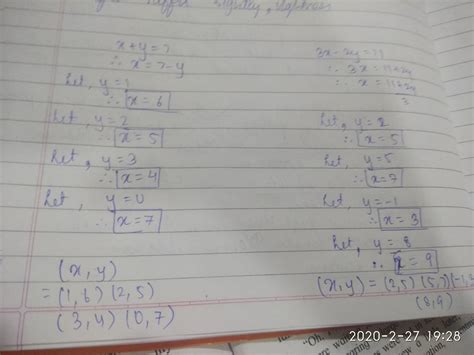 x+y=7
∴ x=7-y
Let, y=1
∴ x=6
Let, y=2
∴ x=5
Let, y=3
∴ x=4
Let, y=0
∴ x=7
(x,y)
=(1,6) (2,5)
(3,4) (0,7)
3x-2y=11
∴ 3x=11+2y
∴ x=11+2y
3
Let, y=2
∴ x=5
Let, y=5
∴ x=7
Let, y=-1
∴ x=3
Let, y=8
∴ x=9
(x,y)=(2,5) (5,7) (-1,3)
(8,9)
"Oh,
were
2020-2-27 19:28